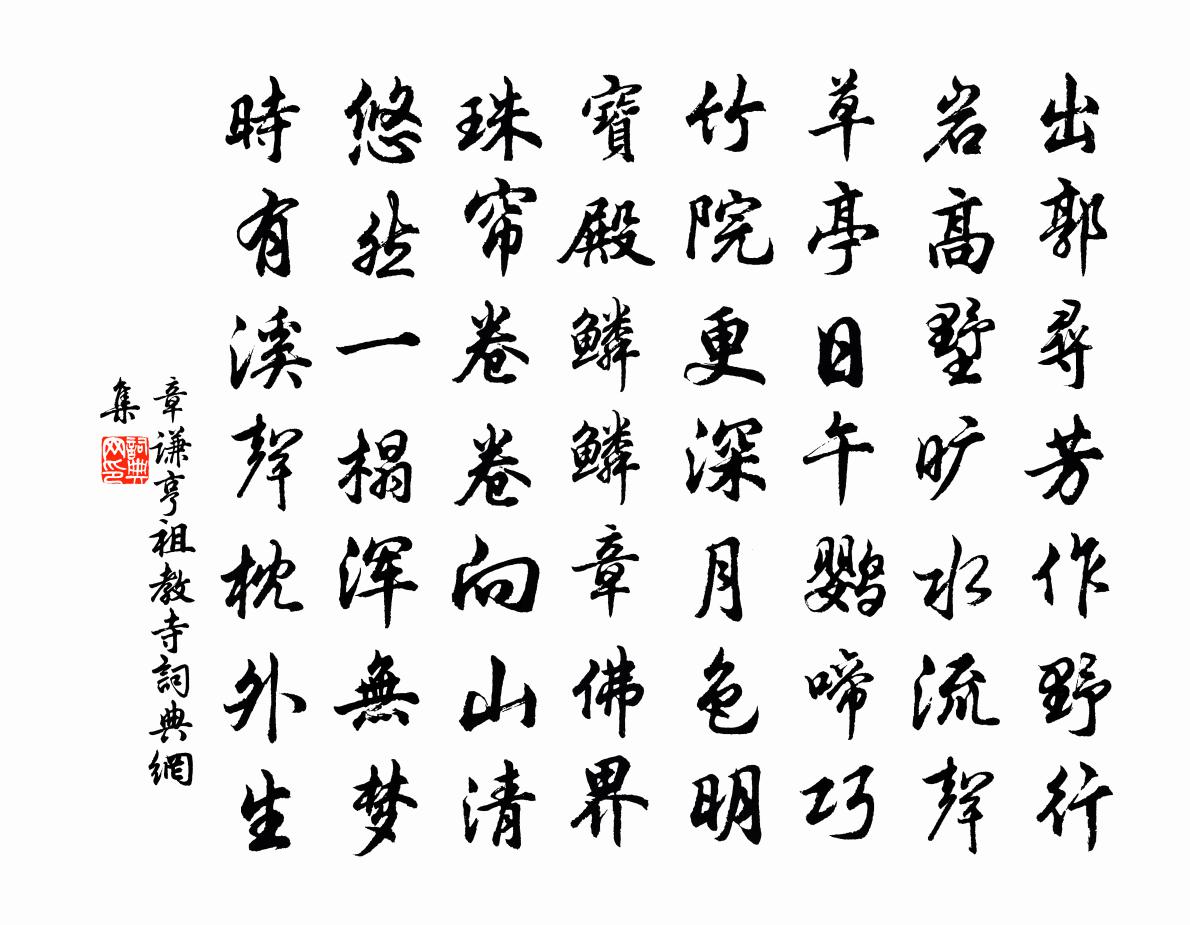 出郭尋芳作野行
岩高墅旷水流聲
草亭日午鸚啼巧
竹院更深月色明
寶殿鳞鳞章佛界
珠帘卷卷向山清
悠然一榻浑無梦
時有溪聲枕外生
章谦亨祖教寺詞典網
集
詞典
网印